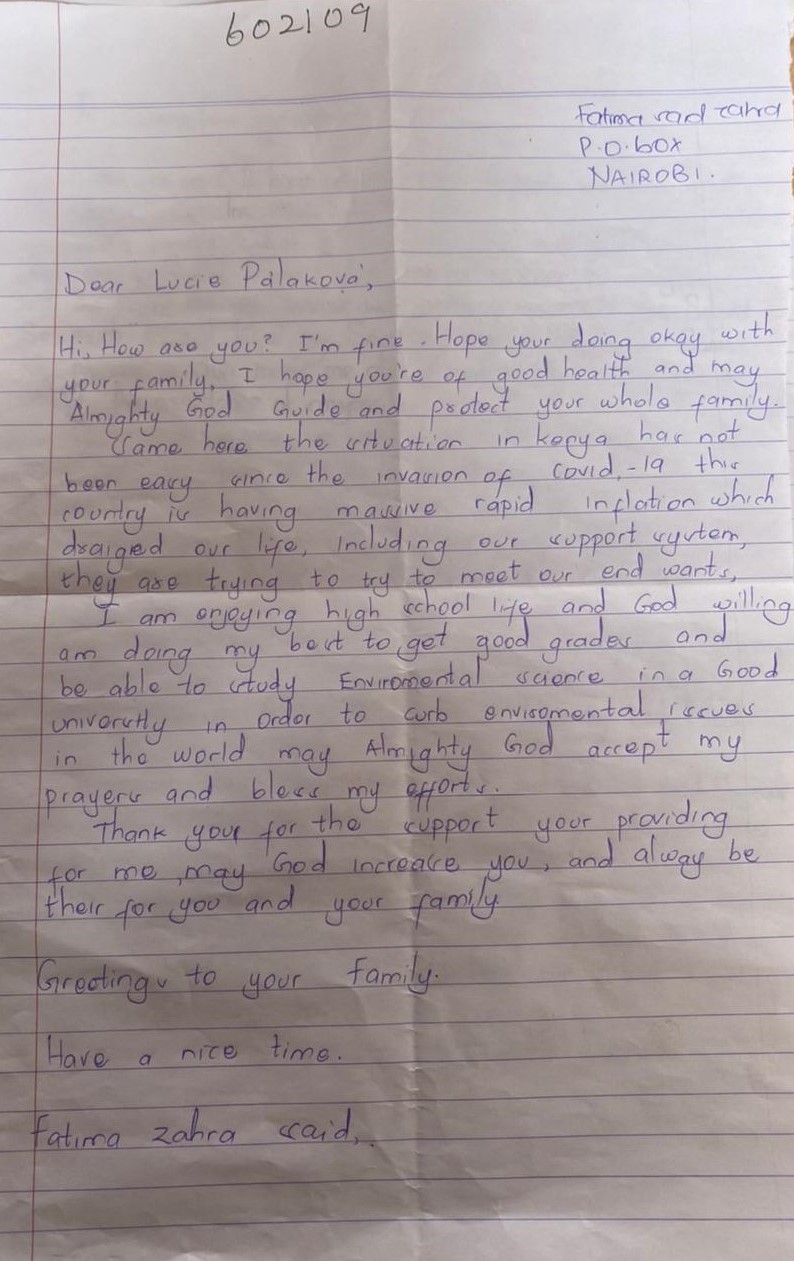 602109
Fatima said zahra
P.O.box
NAIROBI.
Dear Lucie Pálaková,
Hi, How are you? I'm fine. Hope your doing okay with
your family, I hope you're of good health and may
Almighty God Guide and protect your whole family.
Same here the situation in kenya has not
been easy since the invasion of Covid,-19 this
country is having massive rapid inflation which
draiged our life, including our support system,
they are trying to try to meet our end wants,
I am enjoying high school life and God willing
am doing my best to get good grades and
be able to study Enviromental science in a Good
university in order to curb enviromental issues
in the world may Almighty God accept my
prayers and bless my efforts.
Thank your for the support your providing
for me, may God increase you, and alway be
their for you and your family
Greetings to your family.
Have a nice time.
Fatima zahra said,.